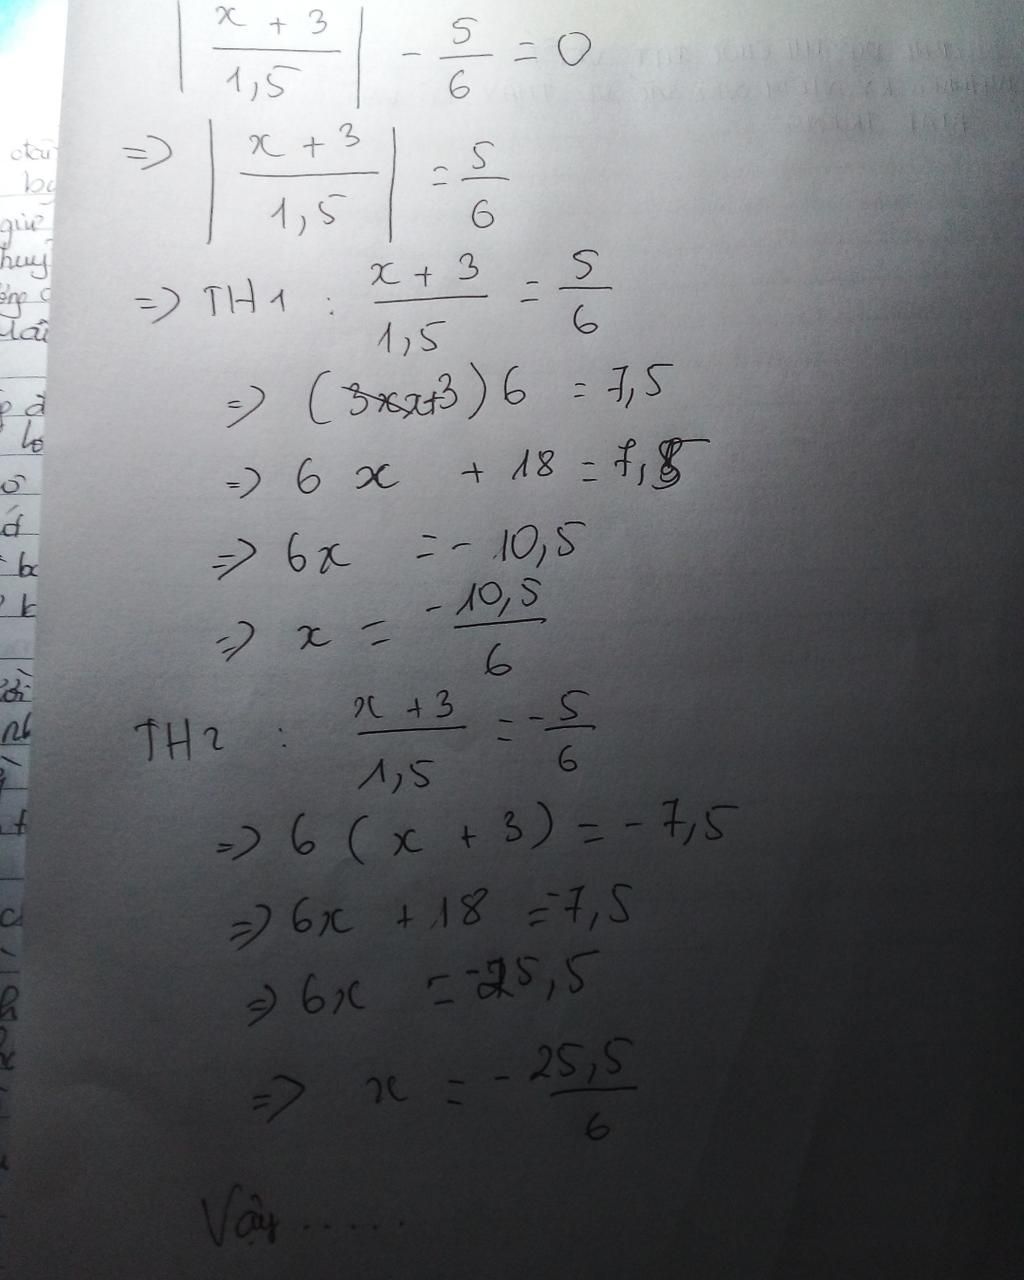 | x + 3 / 1,5 | - 5/6 = 0
=> | x + 3 / 1,5 | = 5/6
=> TH1 : x + 3 / 1,5 = 5/6
=> (x+3) 6 = 7,5
=> 6 x + 18 = 7,5
=> 6x = - 10,5
=> x = - 10,5 / 6
TH2 : x + 3 / 1,5 = - 5/6
=> 6 ( x + 3 ) = - 7,5
=> 6x + 18 = -7,5
=> 6x = -25,5
=> x = - 25,5 / 6
Vậy ......